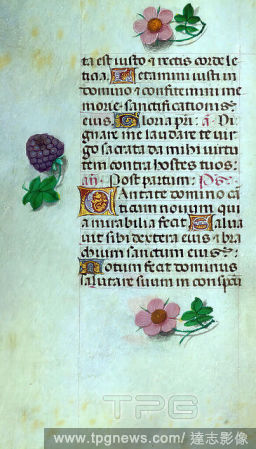 ta est iusto ⁊ rectis corde le
ticia. Letamini iusti in
domino ⁊ confitemini me
morie sanctificationis
eius. Gloria pri: a᷃ Di
gnare me laudare te vir
go sacrata da mihi virtu
tem contra hostes tuos:
añ. Post partum: Ps.
Cantate domino cã
ticum novum qui
a mirabilia fecit Salva
vit sibi dextera eius ⁊ bra
chium sanctum eius:
Notum fecit dominus
salutare suum in conspctu
TPG
www.tpgnews.com/ 達志影像